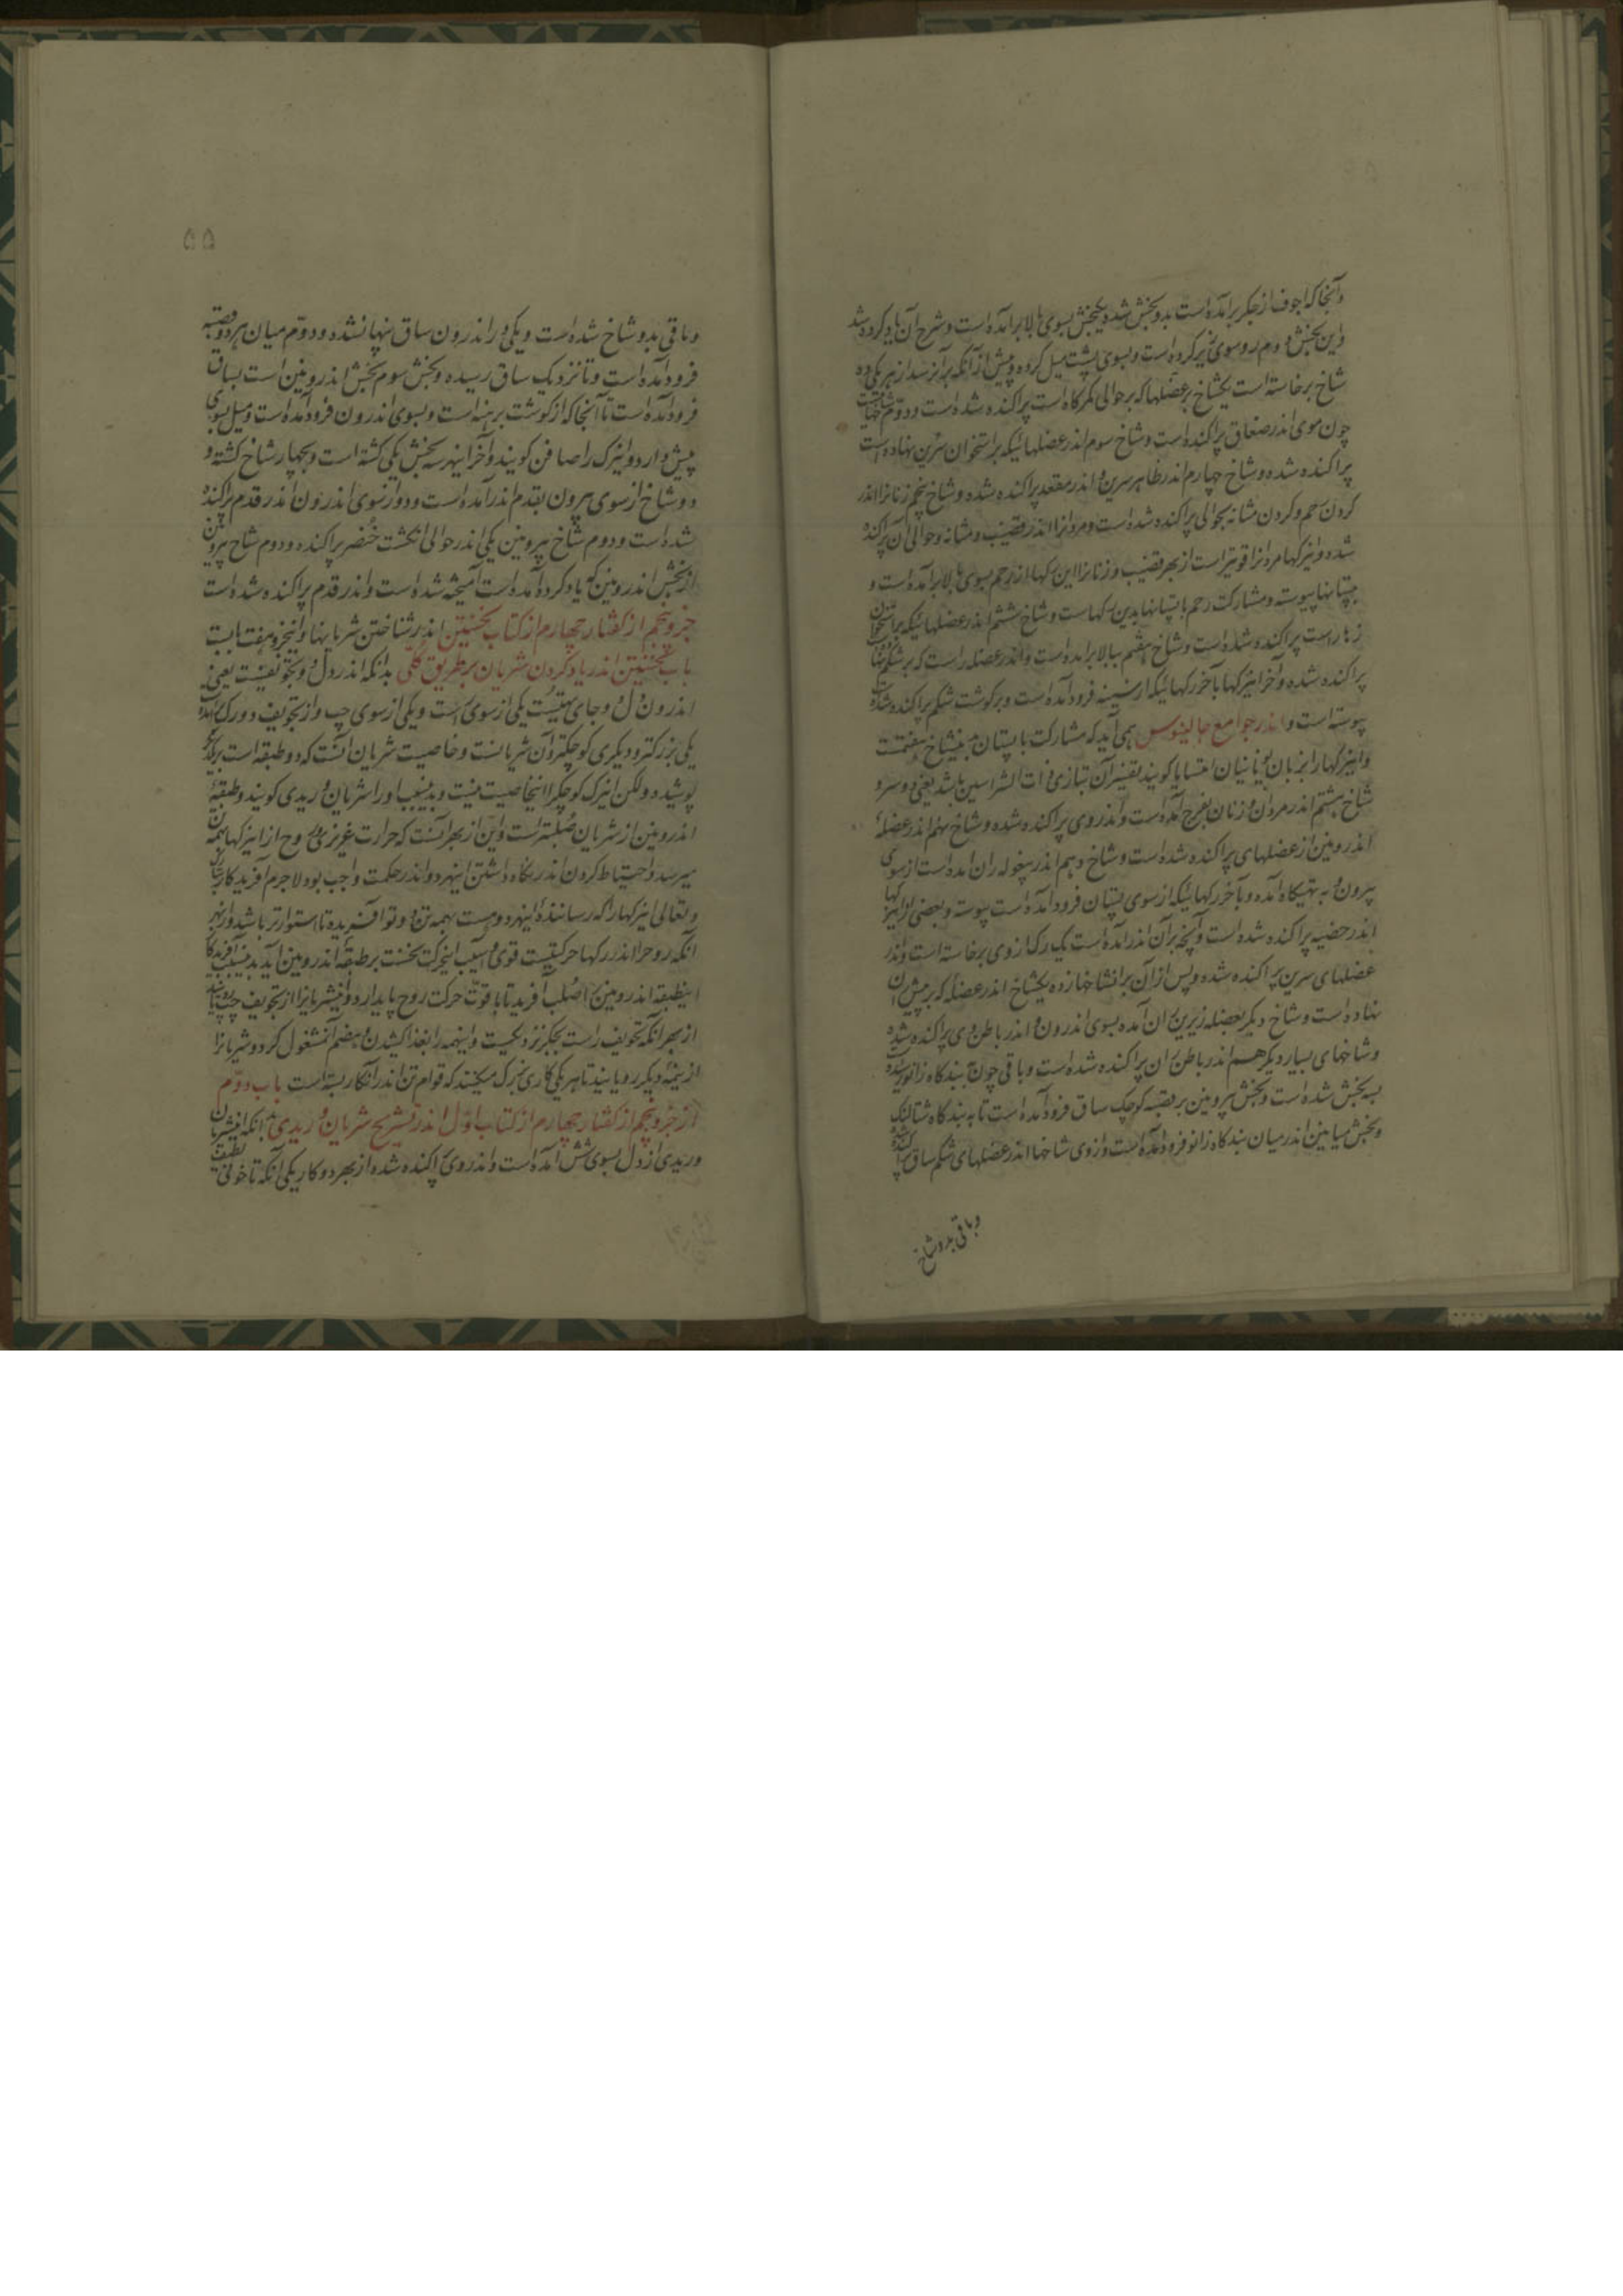 وآنجا که اجوف از جگر برآمده است بدو بخش شده یکبخش بسوی بالا برآمده است و شرح آن یاد کرده شد
واین بخش دوم روسوی زیر کرده است وبسوی پشت میل کرده و پیش از آنکه برآنرسد از هر یکی ده
شاخ برخاسته است یکشاخ بر عضلها که برحوالی کمرکاه است پراکنده شده است ودوم شاخهاست
چون موی اندر صفاق پراکنده است وشاخ سوم اندر عضلهائیکه بر استخوان سرین نهاده است
پراکنده شده وشاخ چهارم اندر ظاهر سرین و اندر مقعد پراکنده شده وشاخ پنجم زنانرا اندر
کردن رحم وکردن مثانه بحوالی پراکنده شده است ومردانرا اندر قضیب ومثانه وحوالی آن پراکنده
شده واینرکها مردانرا قویتر است از بهر قضیب وزنانرا این رکها از رحم بسوی بالا برآمده است و
بپستانها پیوسته ومشارکت رحم با پستانها بدین رکهاست وشاخ ششم اندر عضلهائیکه بر استخوان
زهارست پراکنده شده است وشاخ هفتم ببالا برآمده است واندر عضله راست که بر شکم نهاده
پراکنده شده وآخر اینرکها بآخر رکهائیکه از سینه فرود آمده است وبر کوشت شکم پراکنده شده
پیوسته است واندر جوامع جالینوس همی آید که مشارکت با پستان بدینشاخ هفتمست
واینرکها را بزبان یونانیان کویند تفسیر آن بتازی ذات الراسین باشد یعنی دوسر و
شاخ هشتم اندر مردان و زنان بفرج آمده است واندروی پراکنده شده وشاخ نهم اندر عضله
اندرونین از عضلهای پراکنده شده است وشاخ دهم اندر بیغوله ران آمده است از سوی
بیرون و به تهیکاه آمده وبآخر رکهائیکه از سوی پستان فرود آمده است پیوسته وبعضی از اینرکها
اندر خصیه پراکنده شده است وآنچه برآن اندر آمده است یک رک ازوی برخاسته است واندر
عضلهای سرین پراکنده شده وپس از آن برانشاخها زده یکشاخ اندر عضله که بر پیش ران
نهاده است وشاخ دیکر بعضله زیرین ران آمده بسوی اندرون و اندر باطن وی پراکنده شده
وشاخهای بسیار دیکر هم اندر باطن ران پراکنده شده است وباقی چون ببندکاه زانو رسیده
بسه بخش شده است وبخش بیرونین بر قصبه کوچک ساق فرود آمده است تا به بندکاه شتالنک
وبخش میانین اندر میان بندکاه زانو فرود آمده است وازوی شاخها اندر عضلهای شکم ساق پراکنده
وباقی بدو شاخ
۵۵
وباقی بدو شاخ شده است ویکی را اندرون ساق پنهانشده ودوم میان هر دو قصبه
فرود آمده است وتا نزدیک ساق رسیده وبخش سوم بخش اندرونین است بساق
فرود آمده است تا آنجا که از کوشت برهنه است وبسوی اندرون فرود آمده است ومیل بسوی
پیش دارد واینرک را صافن کویند وآخر اینهر سه بخش یکی کشته است وبچهار شاخ کشته و
دوشاخ از سوی بیرون بقدم اندر آمده است ودو از سوی اندرون اندر قدم پراکنده
شده است ودوم شاخ بیرونین یکی اندر حوالی انکشت خنصر پراکنده ودوم شاخ بیرونین
از بخش اندرونین که یاد کرده آمده است آمیخته شده است واندر قدم پراکنده شده است
جزو پنجم از کفتار چهارم از کتاب نخستین اندر شناختن شریانها واینجزو هفت بابست
باب نخستین اندر یاد کردن شریان بر طریق کلی بدانکه اندر دل دو تجویفست یعنی
اندرون دل دو جای تهیست یکی از سوی راست ویکی از سوی چپ واز تجویف دو رک آمده
یکی بزرکتر ودیکری کوچکتر وآن شریانست وخاصیت شریان آنست که دو طبقه است بریکدیکر
پوشیده ولکن اینرک کوچکرا اینخاصیت نیست وبدینسبب اورا شریان وریدی کویند وطبقهٔ
اندرونین از شریان صُلبتر است واین از بهر آنست که حرارت غریزی و روح از اینرکها بهمه تن
میرسد واحتیاط کردن اندر نکاه داشتن اینهردو اندر حکمت واجب بود لاجرم آفریدکار تبارک
وتعالی اینرکها را که رسانندهٔ اینهردو است بهمه تن دوتو آفریده تا استوارتر باشد واز بهر
آنکه روح را اندر رکها حرکتیست قوی وآسیب اینحرکت نخست بر طبقه اندرونین آید بدینسبب آفریدکار
اینطبقه اندرونین را صُلب آفرید تا با قوّت حرکت روح پایدارد واینشریانرا از تجویف چپ رویانید
از بهر آنکه تجویف راست بجکر نزدیکست واینهمه را بغذا کشیدن وهضم آن مشغول کرد وشریانرا
از نیمهٔ دیکر رویانید تا هر یکی کاری بزرک میکنند که قوام تن اندر آنکار بسته است باب دوّم
از جزو پنجم از کفتار چهارم از کتاب اوّل اندر تشریح شریان وریدی بدانکه اینشریان
وریدی از دل بسوی شش آمده است واندروی پراکنده شده از بهر دو کار یکی آنکه تا خونی لطیف